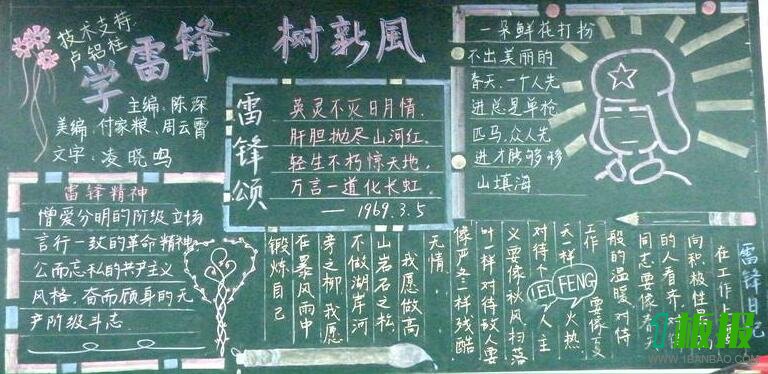 技术支持:
卢铝桂
学雷锋 树新風
主编:陈深
美编:付家粮、周云霄
文字:凌晓鸣
雷锋颂
英灵不灭日月情,
肝胆抛尽山河红,
轻生不朽惊天地,
万言一道化长虹,
—1969.3.5
一朵鲜花打扮
不出美丽的
春天,一个人先
进总是单枪
匹马,众人先
进才能够移
山填海.
雷锋精神
憎爱分明的阶级立场
言行一致的革命精神
公而忘私的共产主义
风格,奋而顾身的无
产阶级斗志.
雷锋日记
在工作上
向积极性
的人看齐
同志要像
般的温暖 对待
工作 要像夏
天一样 火热
对待个人主
义要像秋风扫落
叶一样 对待敌人要
像严冬一样残酷
无情.
LEI FENG
我愿做高
山岩石之松
不做湖岸河
旁之柳 我愿
在暴风雨中
锻炼自己
板报
WWW.1BANBAO.COM